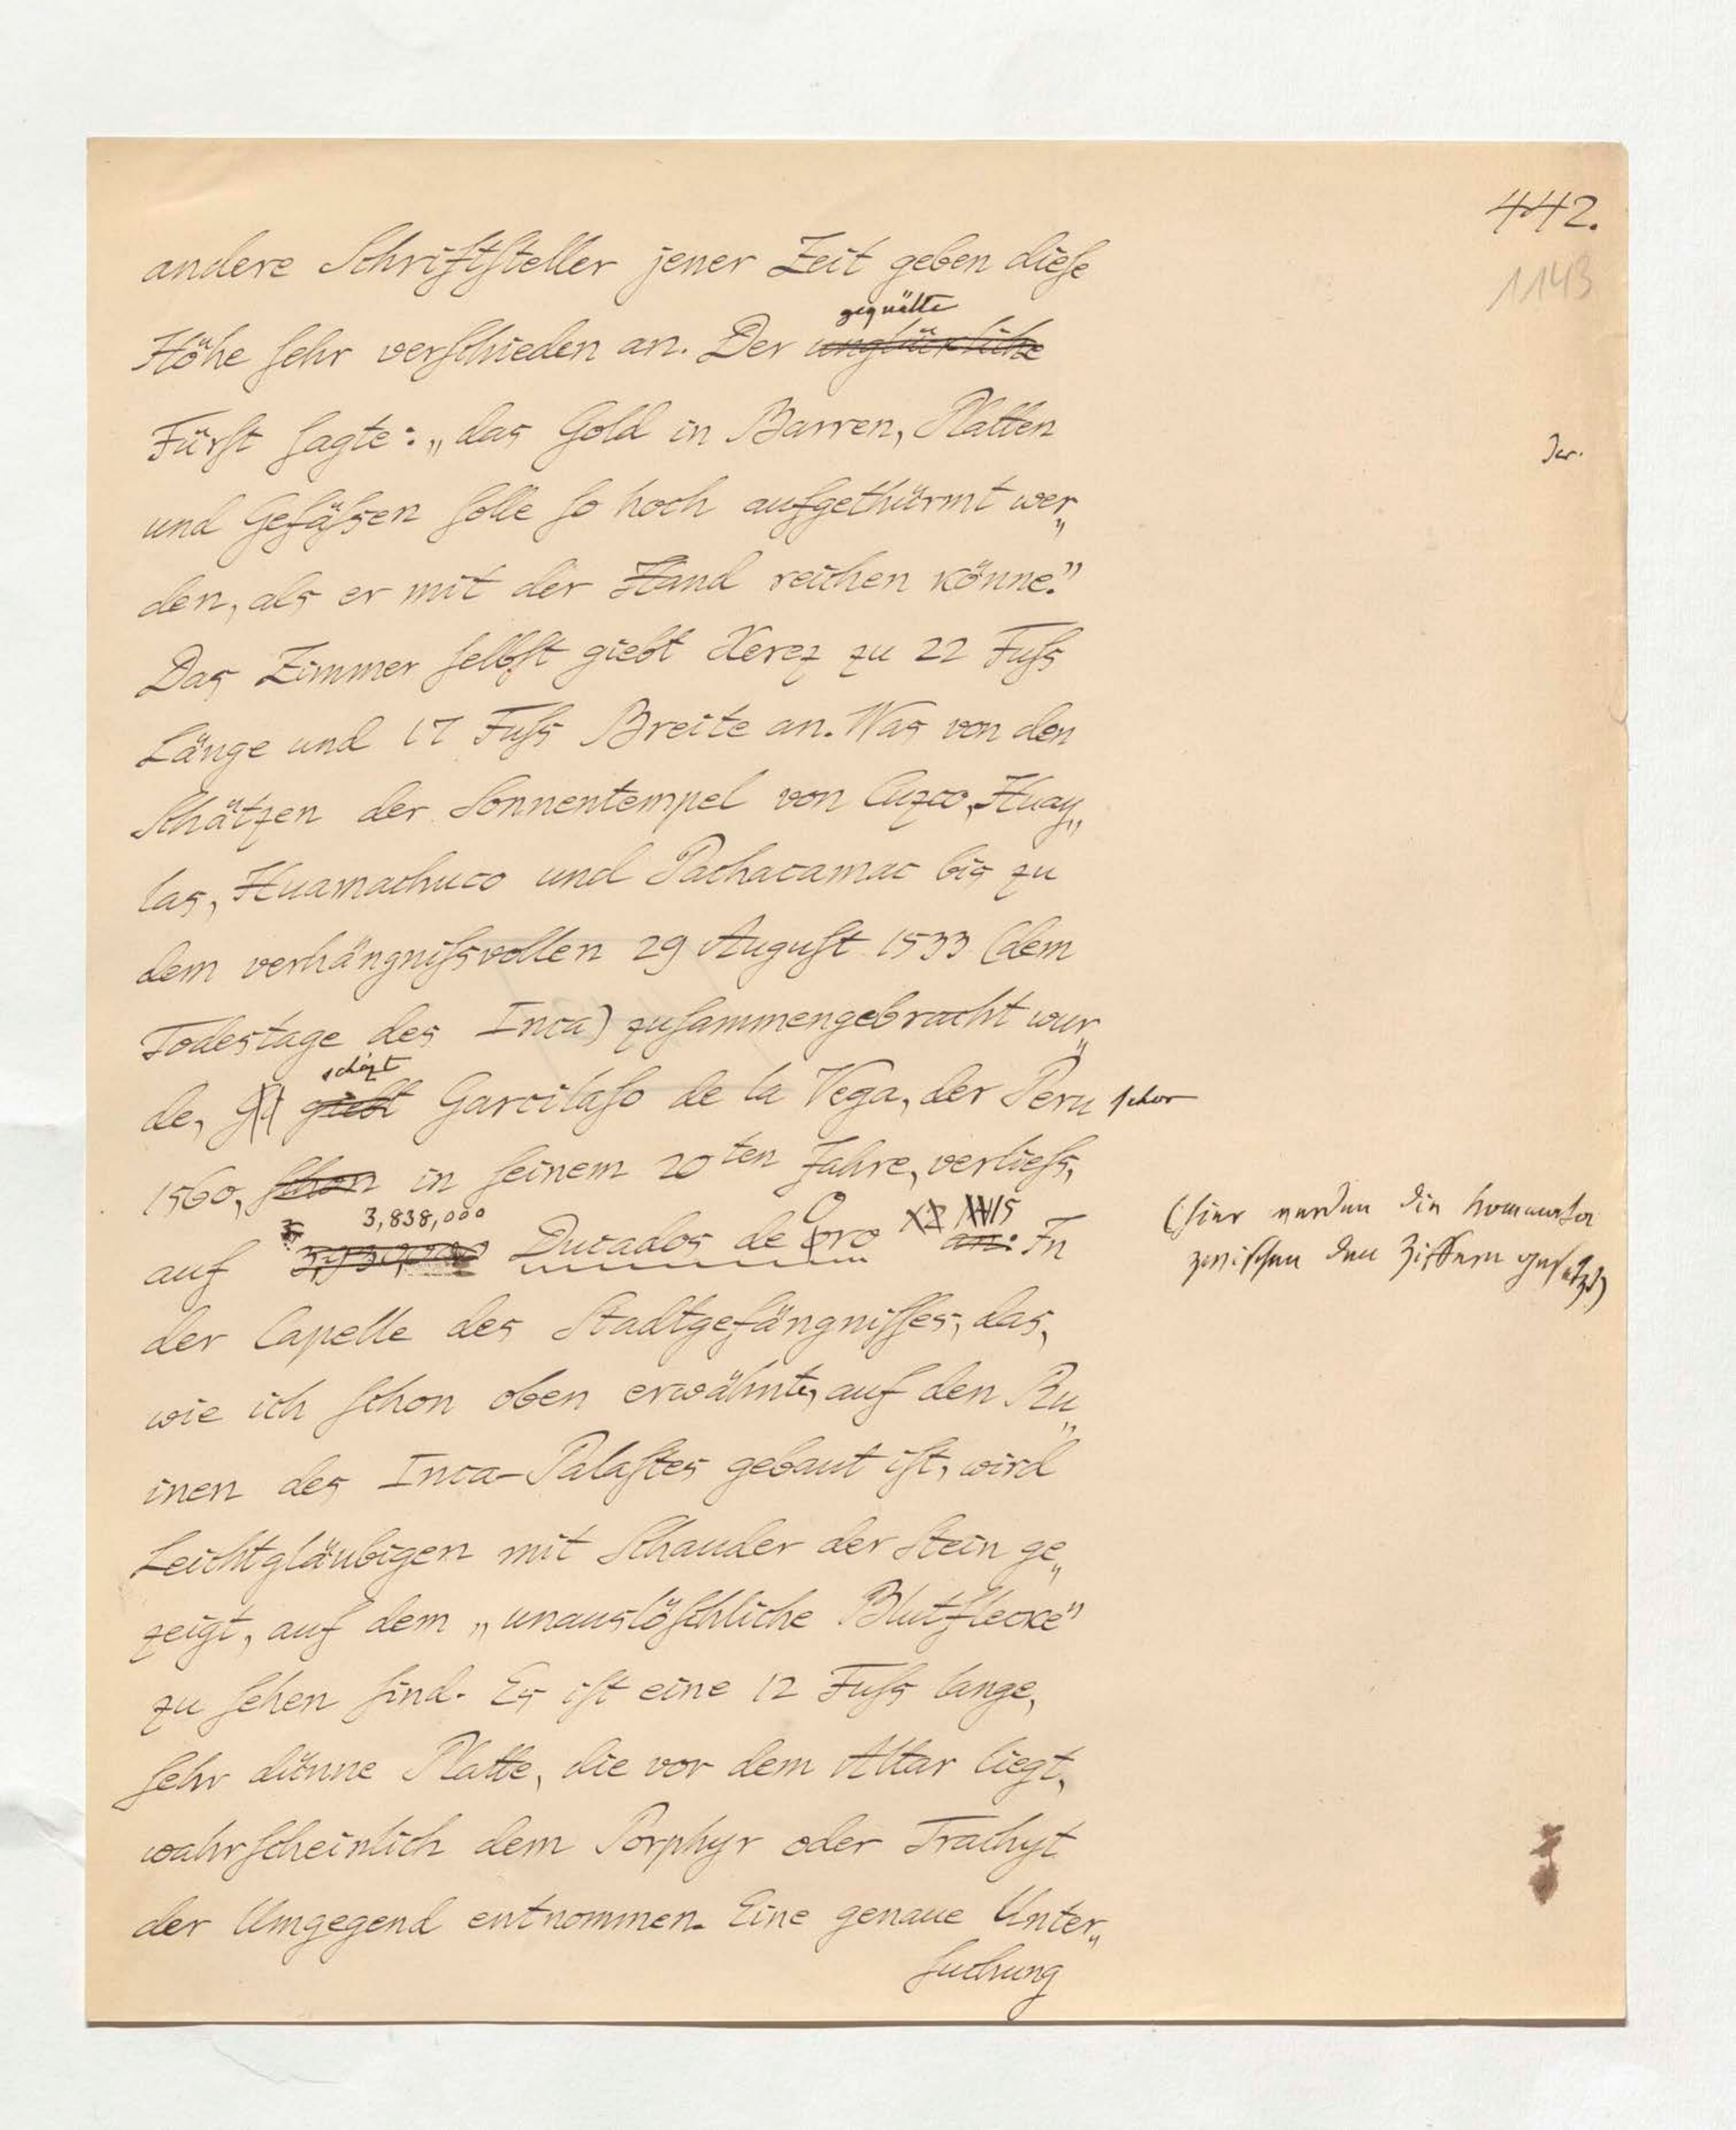 442.
1143
andere Schriftsteller jener Zeit geben diese
gequälte
Höhe sehr verschieden an. Der unglückliche
Fürst sagte: „das Gold in Barren, Platten
und Gefäßen solle so hoch aufgethürmt wer„
den, als er mit der Hand reichen könne."
Das Zimmer selbst giebt Xerez zu 22 Fuſs
Länge und 17 Fuſs Breite an. Was von den
Schätzen der Sonnentempel von Cuzco, Huay„
las, Huamachuco und Pachacamac bis zu
dem verhängniſsvollen 29 August 1533 (dem
Todestage des Inca) zusammengebracht wur„
schäzt
de, giebt Garcilaso de la Vega, der Peru schon
1560, schon in seinem 20ten Jahre, verlieſs,
3,838,000
auf Ducados de Oro an. In
(hier werden die Kommata
zwischen den Ziffern gesetzt)
der Capelle des Stadtgefängnisses, das,
wie ich schon oben erwähnte, auf den Ru„
inen des Inca-Palastes gebaut ist, wird
Leichtgläubigen mit Schauder der Stein ge„
zeigt, auf dem „unauslöschliche Blutflecke"
zu sehen sind. Es ist eine 12 Fuſs lange,
sehr dünne Platte, die vor dem Altar liegt,
wahrscheinlich dem Porphyr oder Trachyt
der Umgegend entnommen. Eine genaue Unter„
suchung